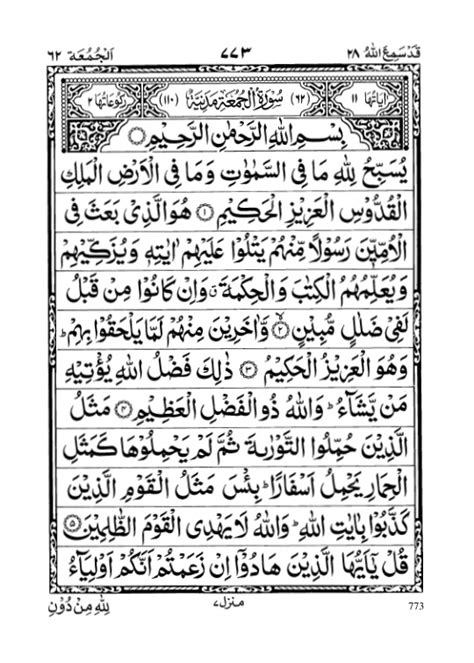 قَدْ سَمِعَ اللّٰهُ ٢٨ ٧٧٣ اَلْجُمُعَة ٦٢
اٰيَاتُهَا ١١ (٦٢) سُوْرَةُ الْجُمُعَةِ مَدَنِيَّةٌ (١١٠) رُكُوْعَاتُهَا ٢
بِسْمِ اللّٰهِ الرَّحْمٰنِ الرَّحِيْمِ
يُسَبِّحُ لِلّٰهِ مَا فِى السَّمٰوٰتِ وَمَا فِى الْاَرْضِ الْمَلِكِ
الْقُدُّوْسِ الْعَزِيْزِ الْحَكِيْمِ ۝١ هُوَ الَّذِىْ بَعَثَ فِى
الْاُمِّيّٖنَ رَسُوْلًا مِّنْهُمْ يَتْلُوْا عَلَيْهِمْ اٰيٰتِهٖ وَيُزَكِّيْهِمْ
وَيُعَلِّمُهُمُ الْكِتٰبَ وَالْحِكْمَةَ ۗ وَاِنْ كَانُوْا مِنْ قَبْلُ
لَفِىْ ضَلٰلٍ مُّبِيْنٍ ۝٢ وَّاٰخَرِيْنَ مِنْهُمْ لَمَّا يَلْحَقُوْا بِهِمْ ؕ
وَهُوَ الْعَزِيْزُ الْحَكِيْمُ ۝٣ ذٰلِكَ فَضْلُ اللّٰهِ يُؤْتِيْهِ
مَنْ يَّشَآءُ ؕ وَاللّٰهُ ذُو الْفَضْلِ الْعَظِيْمِ ۝٤ مَثَلُ
الَّذِيْنَ حُمِّلُوا التَّوْرٰىةَ ثُمَّ لَمْ يَحْمِلُوْهَا كَمَثَلِ
الْحِمَارِ يَحْمِلُ اَسْفَارًا ؕ بِئْسَ مَثَلُ الْقَوْمِ الَّذِيْنَ
كَذَّبُوْا بِاٰيٰتِ اللّٰهِ ؕ وَاللّٰهُ لَا يَهْدِى الْقَوْمَ الظّٰلِمِيْنَ ۝٥
قُلْ يٰۤاَيُّهَا الَّذِيْنَ هَادُوْۤا اِنْ زَعَمْتُمْ اَنَّكُمْ اَوْلِيَآءُ
لِلّٰهِ مِنْ دُوْنِ
منزل ٧
773